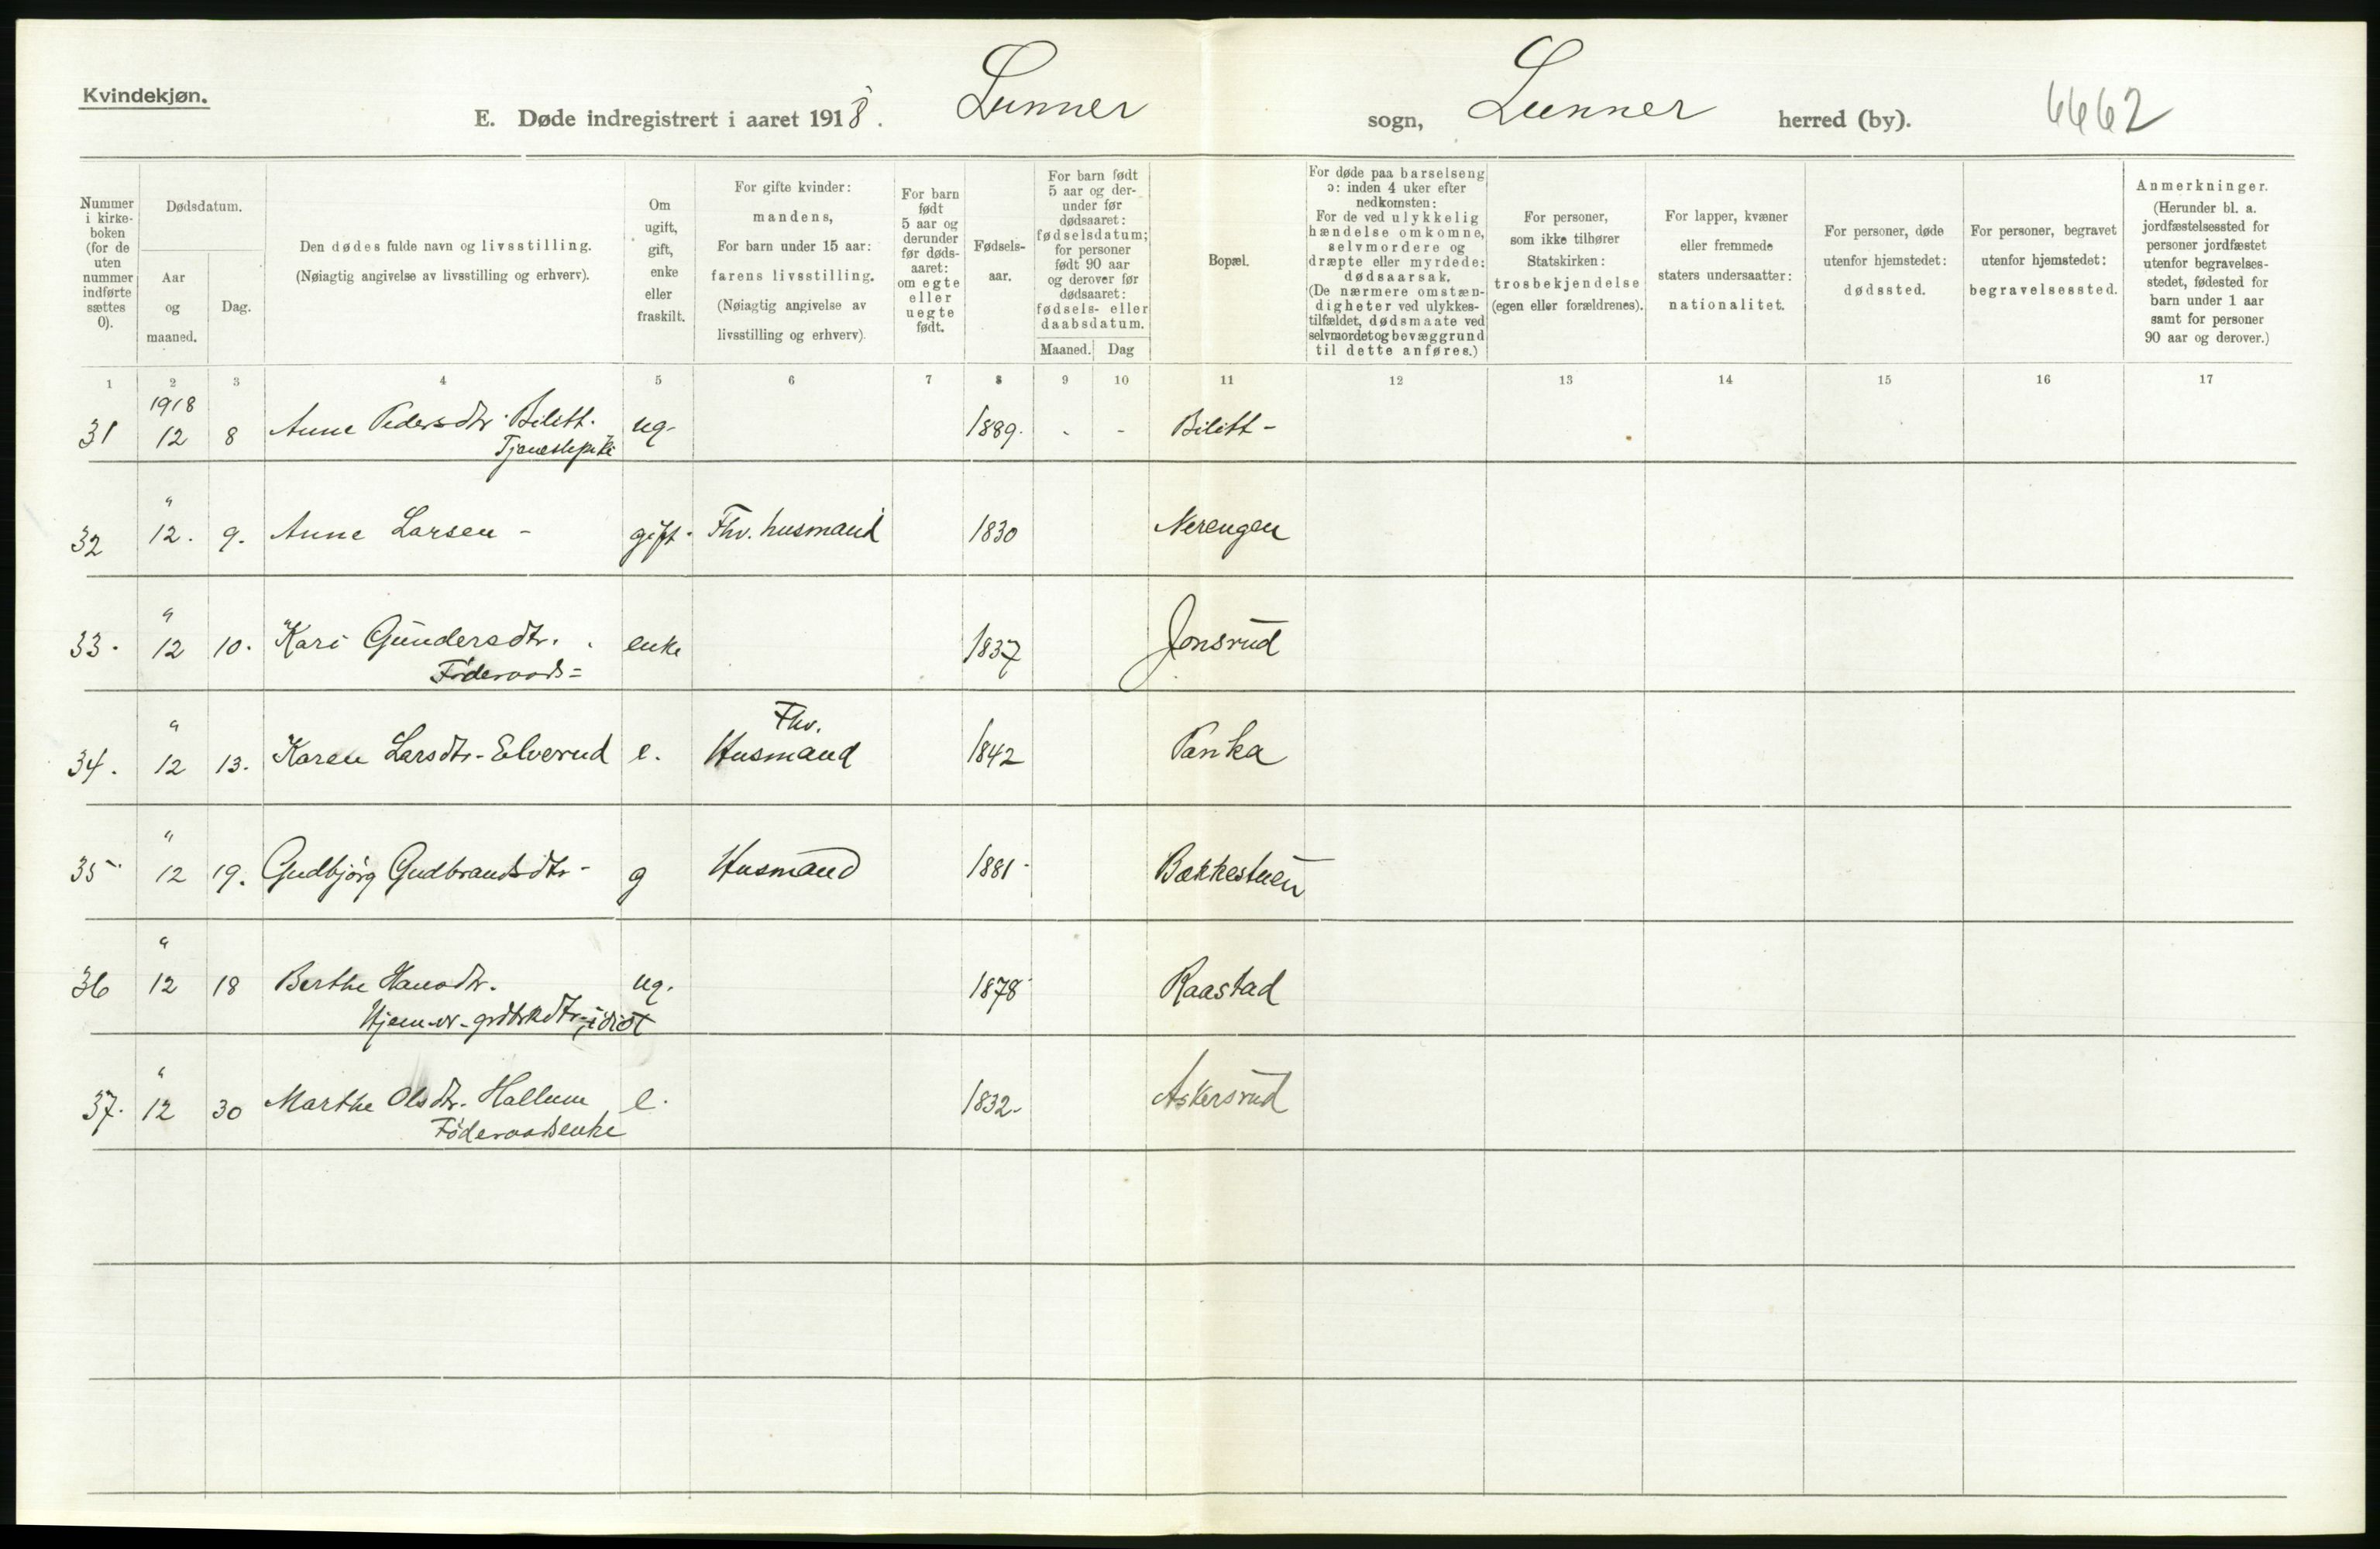 Kvindekjøn.
E. Døde indregistrert i aaret 1918. Lunner sogn, Lunner herred (by). 6662
Nummer i kirke- boken (for de uten nummer indførte sættes 0).
Dødsdatum.
Aar og maaned.
Dag.
Den dødes fulde navn og livsstilling.
(Nøiagtig angivelse av livsstilling og erhverv).
Om ugift, gift, enke eller fraskilt.
For gifte kvinder: mandens, For barn under 15 aar: farens livsstilling. (Nøiagtig angivelse av livsstilling og erhverv).
For barn født 5 aar og derunder før døds- aaret: om egte eller uegte født.
Fødsels- aar.
For barn født 5 aar og der- under før dødsaaret: fødselsdatum; for personer født 90 aar og derover før dødsaaret: fødsels- eller daabsdatum.
Maaned. Dag
Bopæl.
For døde paa barselseng ɔ: inden 4 uker efter nedkomsten: For de ved ulykkelig hændelse omkomne, selvmordere og dræpte eller myrdede: dødsaarsak. (De nærmere omstæn- digheter ved ulykkes- tilfældet, dødsmaate ved selvmordet og bevæggrund til dette anføres.)
For personer, som ikke tilhører Statskirken: trosbekjendelse (egen eller forældrenes).
For lapper, kvæner eller fremmede staters undersaatter: nationalitet.
For personer, døde utenfor hjemstedet: dødssted.
For personer, begravet utenfor hjemstedet: begravelsessted.
Anmerkninger. (Herunder bl. a. jordfæstelsessted for personer jordfæstet utenfor begravelses- stedet, fødested for barn under 1 aar samt for personer 90 aar og derover.)
1 2 3 4 5 6 7 8 9 10 11 12 13 14 15 16 17
1918
31 12 8 Anne Pedersdtr. Bilitt. ug. 1889. - - Bilitt -
Tjenestepike
"
32 12. 9. Anne Larsen - gift. Fhv. husmand 1830 Nerengen
"
33. 12 10. Kari Gundersdtr. enke 1837 Jonsrud
Føderaads=
" Fhv.
34. 12 13. Karen Larsdtr. - Elverud e. Husmand 1842 Panka
"
35. 12 19. Gudbjørg Gudbrandsdtr - g Husmand 1881 Bækkestuen
"
36 12 18 Berthe Hansdtr. ug. 1878 Raastad
idiot
"
37. 12 30 Marthe Olsdtr. Hallum e. 1832. Askersrud
Føderaadsenke